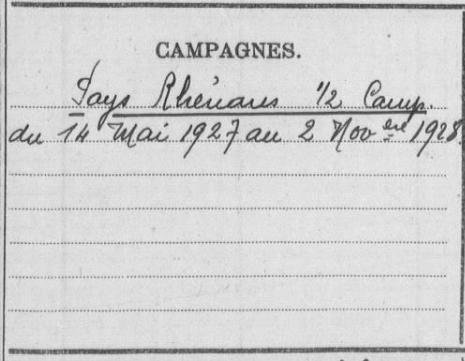 CAMPAGNES.
Pays Rhénans 1/2 Camp.
du 14 Mai 1927 au 2 Novbre 1928